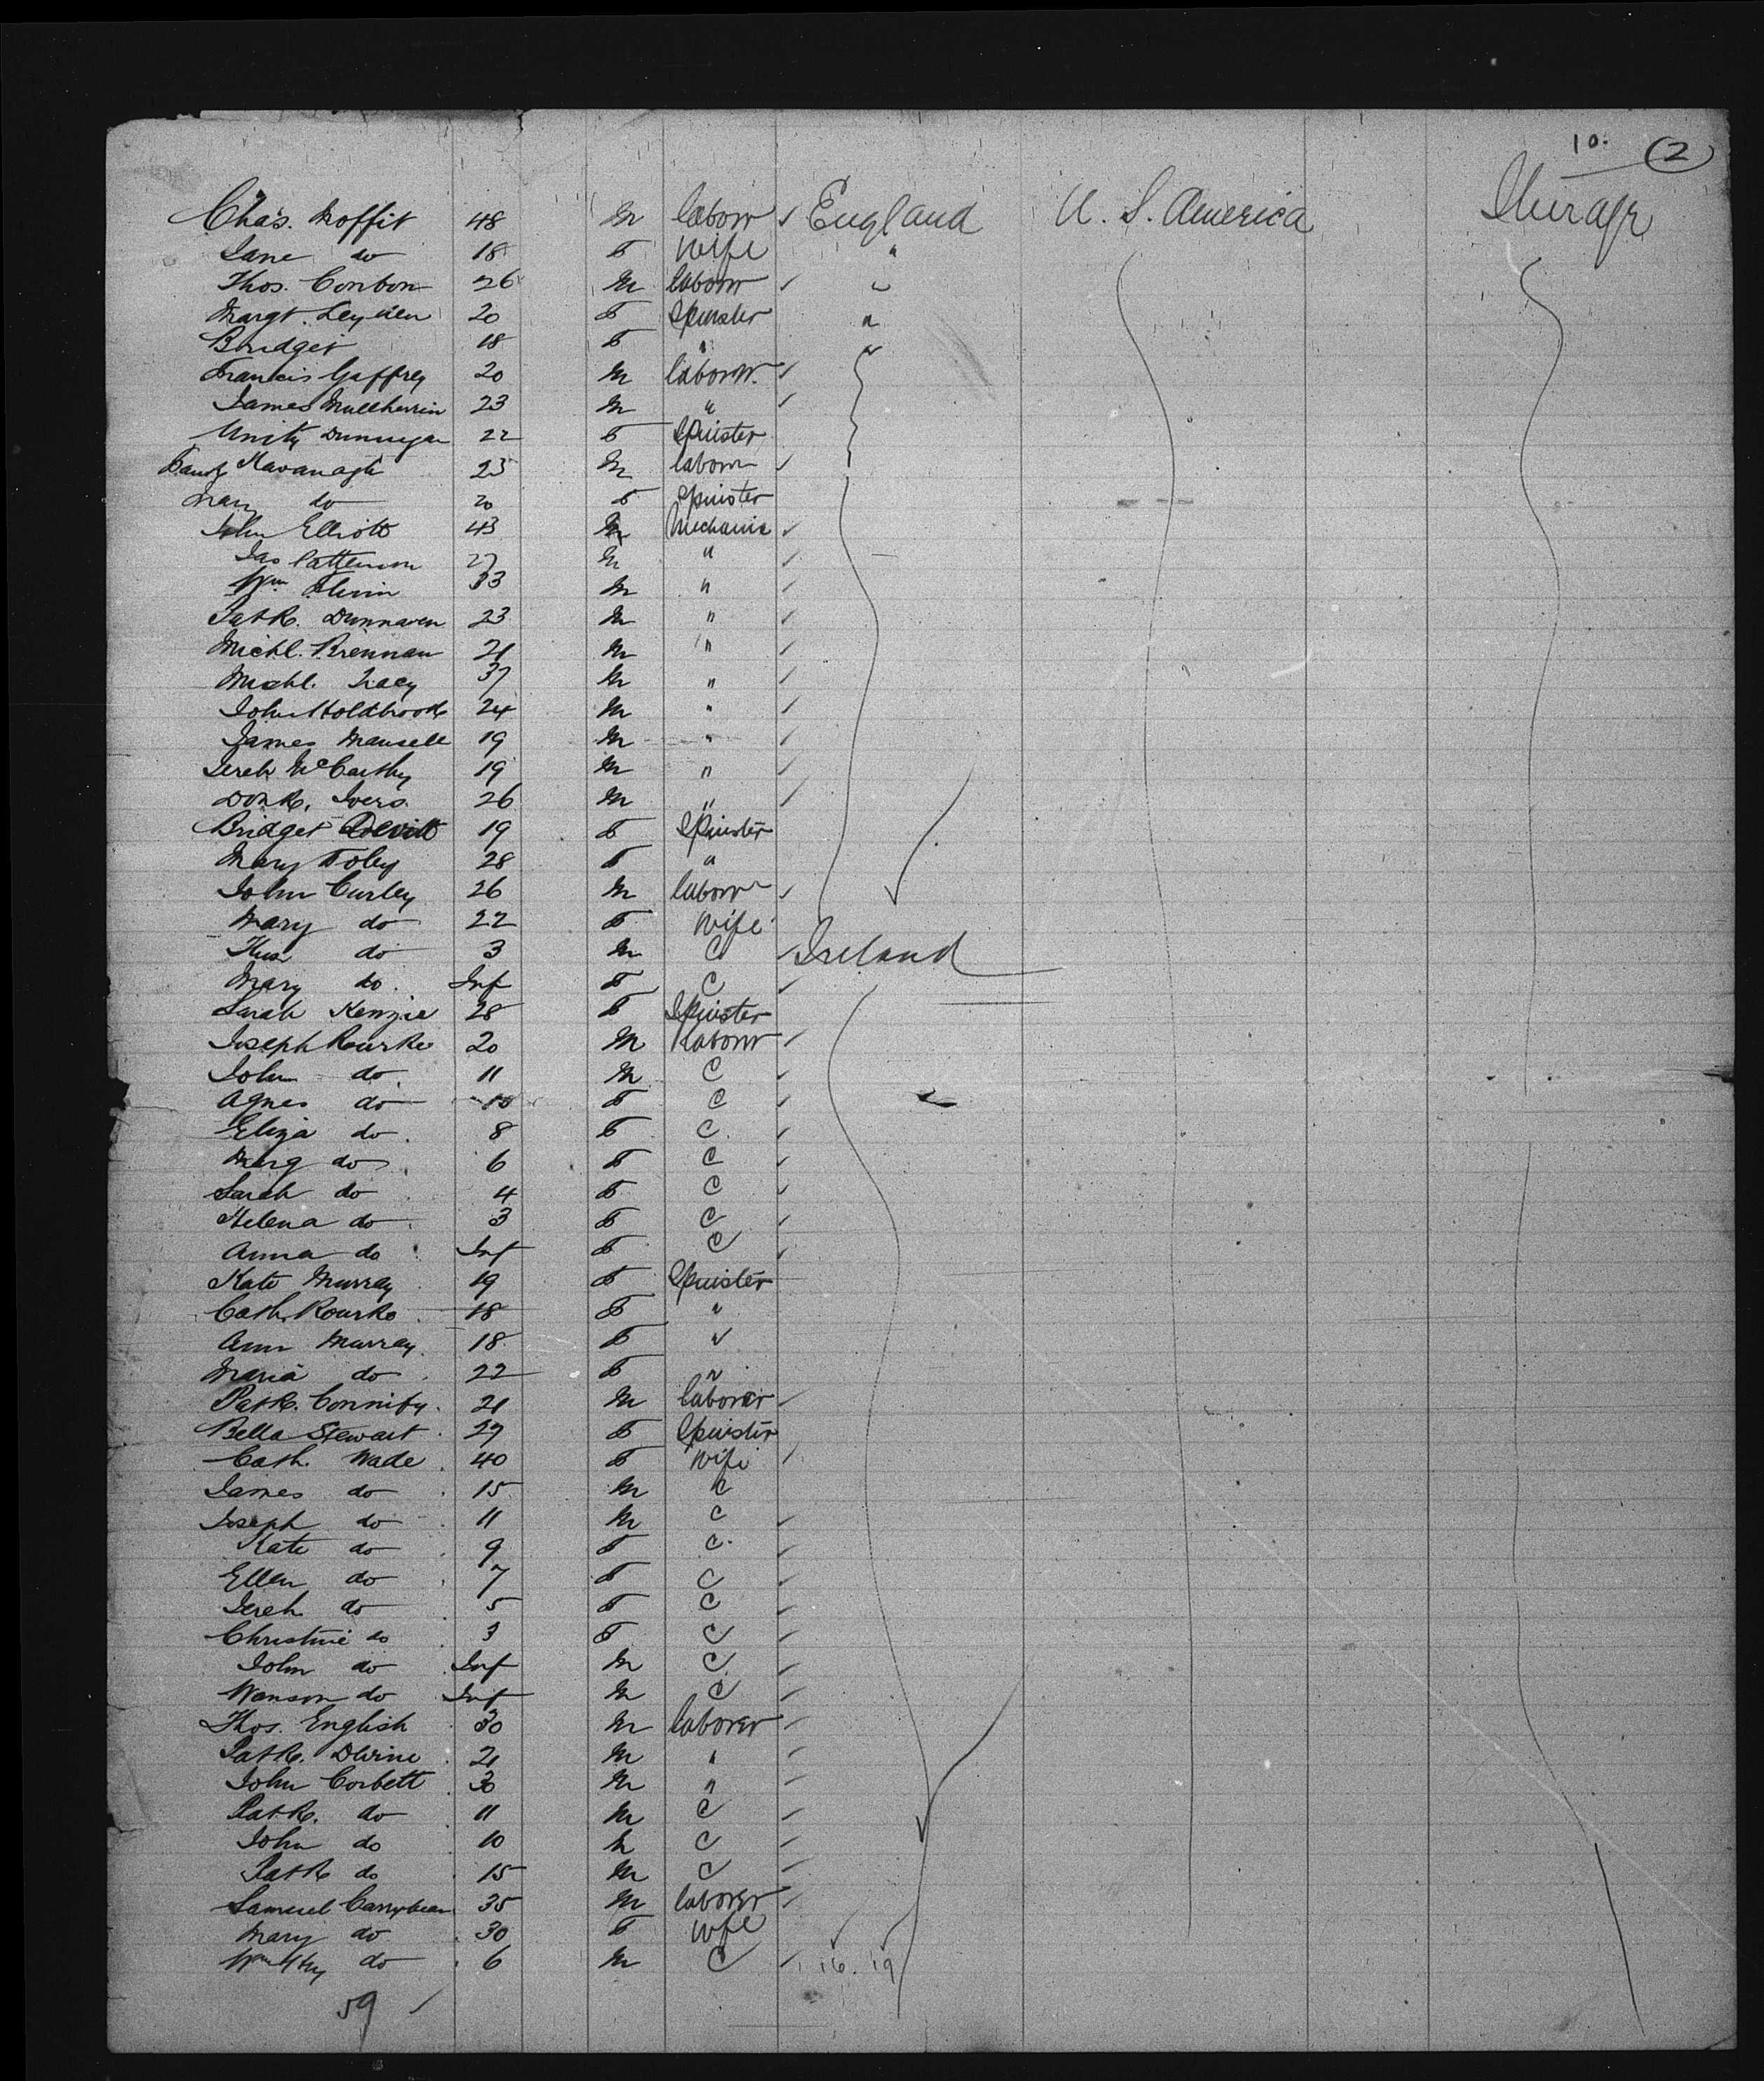 10. (2)
Chas. Moffit 48 M labour ✓ England U. S. America Steerage
Jane do 18 F Wife "
Thos. Conbon 26 M labour ✓ "
Margt. Leyden 20 F Spinster "
Bridget 18 F " "
Francis Gaffrey 20 M labour. ✓
James Mullherrin 23 M " ✓
Unity Dunnigan 22 F Spinster
Kavanagh 23 M labour ✓
Mary do 20 F Spinster
John Elliott 43 M Mechanic ✓
Jas Patterson 27 M " ✓
Wm. Flinn 33 M " ✓
Patk. Dunnaven 23 M " ✓
Michl. Brennan 21 M " ✓
Michl. Tracy 37 M " ✓
John Holdbrook 24 M " ✓
James Mansell 19 M " ✓
Jereh McCarthy 19 M " ✓
Ivers 26 M " ✓
Bridget Devitt 19 F Spinster
Mary Foley 28 F "
John Curley 26 M labour ✓
Mary do 22 F Wife
do 3 M C ✓ Ireland
Mary do. Inf F C ✓
Sarah Kenzie 28 F Spinster
Joseph Rourke 20 M Labour ✓
John do. 11 M C ✓
Agnes do 10 F C ✓
Eliza do. 8 F C. ✓
Marg do 6 F C ✓
Sarah do 4 F C ✓
Helena do 3 F C ✓
Anna do Inf F C ✓
Kate Murray 19 F Spinster
Cath. Rourke 18 F "
Ann Murray 18 F "
Maria do 22 F "
Patk. Connify. 21 M laborer ✓
Bella Stewart 27 F Spinster
Cath. Wade 40 F Wife ✓
James do 15 M C
Joseph do 11 M C ✓
Kate do 9 F C. ✓
Ellen do 7 F C ✓
Jereh do 5 F C ✓
Christine do 3 F C ✓
John do Inf M C ✓
Wanson do Inf M C ✓
Thos. English 30 M laborer ✓
Patk. Divine 21 M " ✓
John Corbett 30 M " ✓
Patk. do 11 M C ✓
John do 10 M C ✓
Patk do 15 M C ✓
Samuel 35 M laborer ✓
Mary do 30 F Wife
Wm Hy do 6 M C ✓ 16. 19
59 ✓